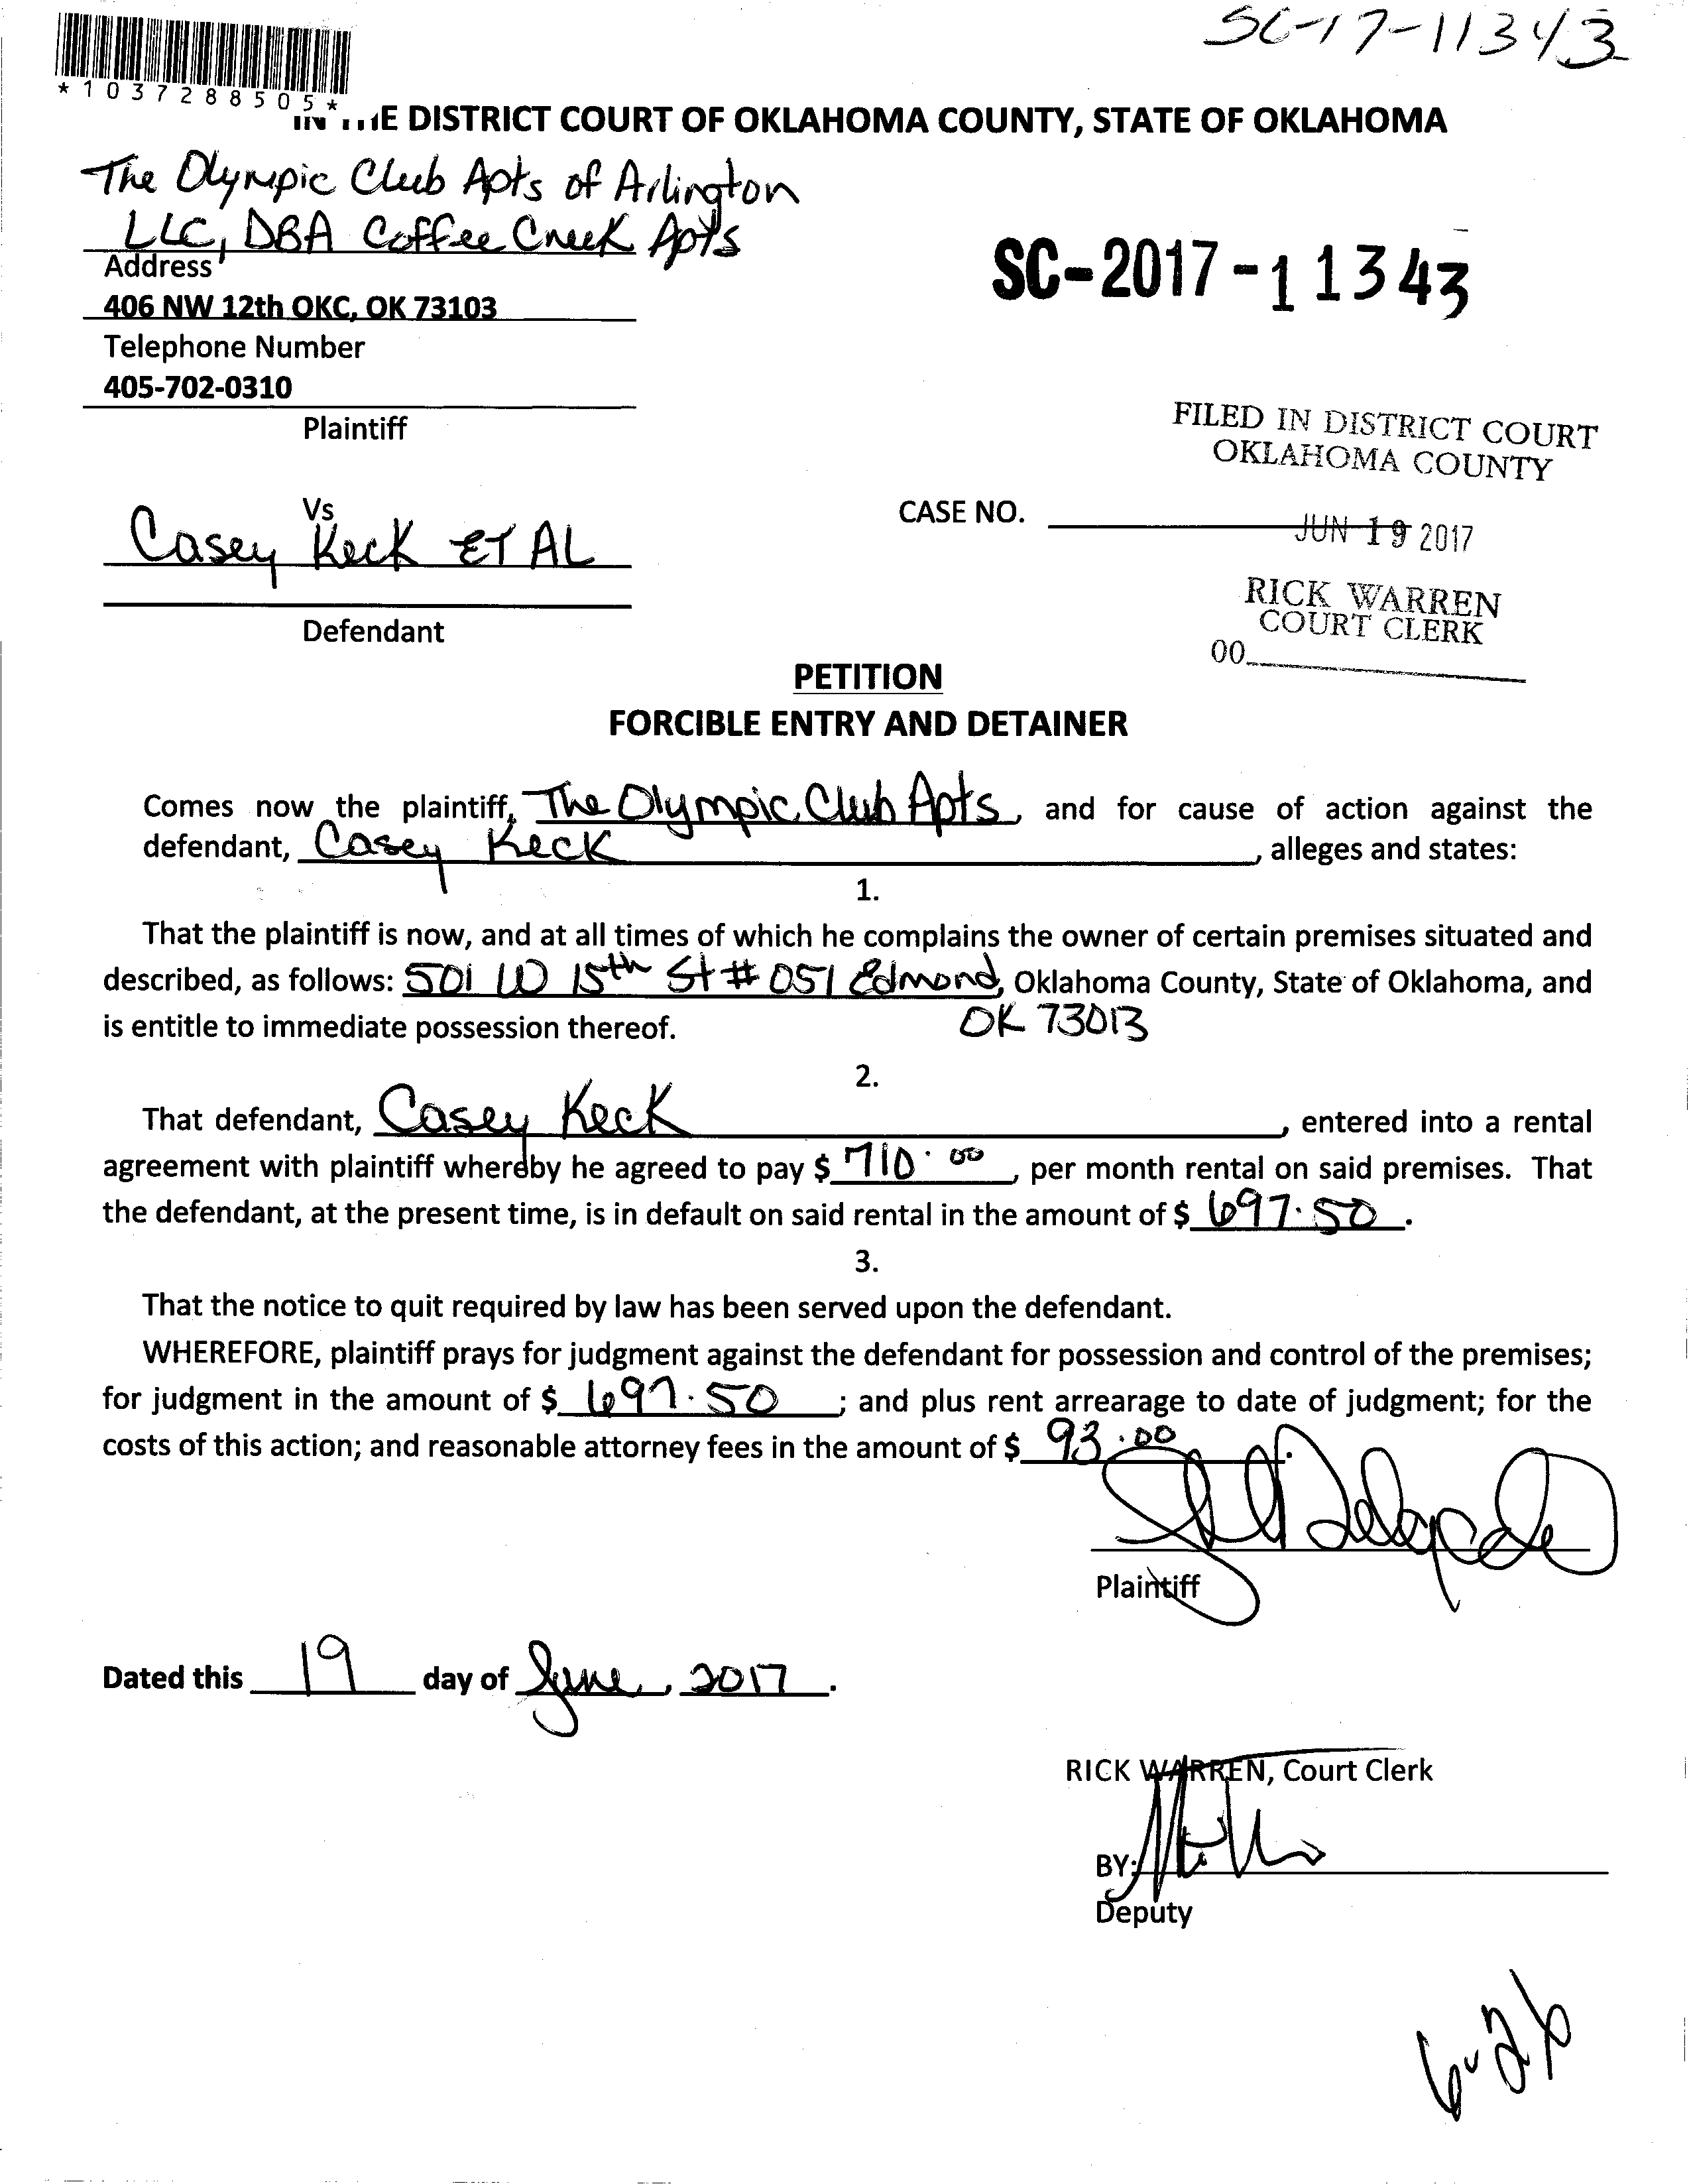 SC-17-11343
*1037288505*
IN THE DISTRICT COURT OF OKLAHOMA COUNTY, STATE OF OKLAHOMA
The Olympic Club Apts of Arlington
LLC, DBA Coffee Creek Apts
Address
406 NW 12th OKC, OK 73103
Telephone Number
405-702-0310
Plaintiff
SC-2017-11343
FILED IN DISTRICT COURT
OKLAHOMA COUNTY
Vs
Casey Keck ET AL
Defendant
CASE NO.
JUN 19 2017
RICK WARREN
COURT CLERK
00
PETITION
FORCIBLE ENTRY AND DETAINER
Comes now the plaintiff, The Olympic Club Apts, and for cause of action against the
defendant, Casey Keck, alleges and states:
1.
That the plaintiff is now, and at all times of which he complains the owner of certain premises situated and
described, as follows: 501 W 15th St # 051 Edmond, Oklahoma County, State of Oklahoma, and
is entitle to immediate possession thereof. OK 73013
2.
That defendant, Casey Keck, entered into a rental
agreement with plaintiff whereby he agreed to pay $ 710.00, per month rental on said premises. That
the defendant, at the present time, is in default on said rental in the amount of $ 697.50.
3.
That the notice to quit required by law has been served upon the defendant.
WHEREFORE, plaintiff prays for judgment against the defendant for possession and control of the premises;
for judgment in the amount of $ 697.50; and plus rent arrearage to date of judgment; for the
costs of this action; and reasonable attorney fees in the amount of $ 93.00.
Plaintiff
Dated this 19 day of June, 2017.
RICK WARREN, Court Clerk
BY:
Deputy
6-26